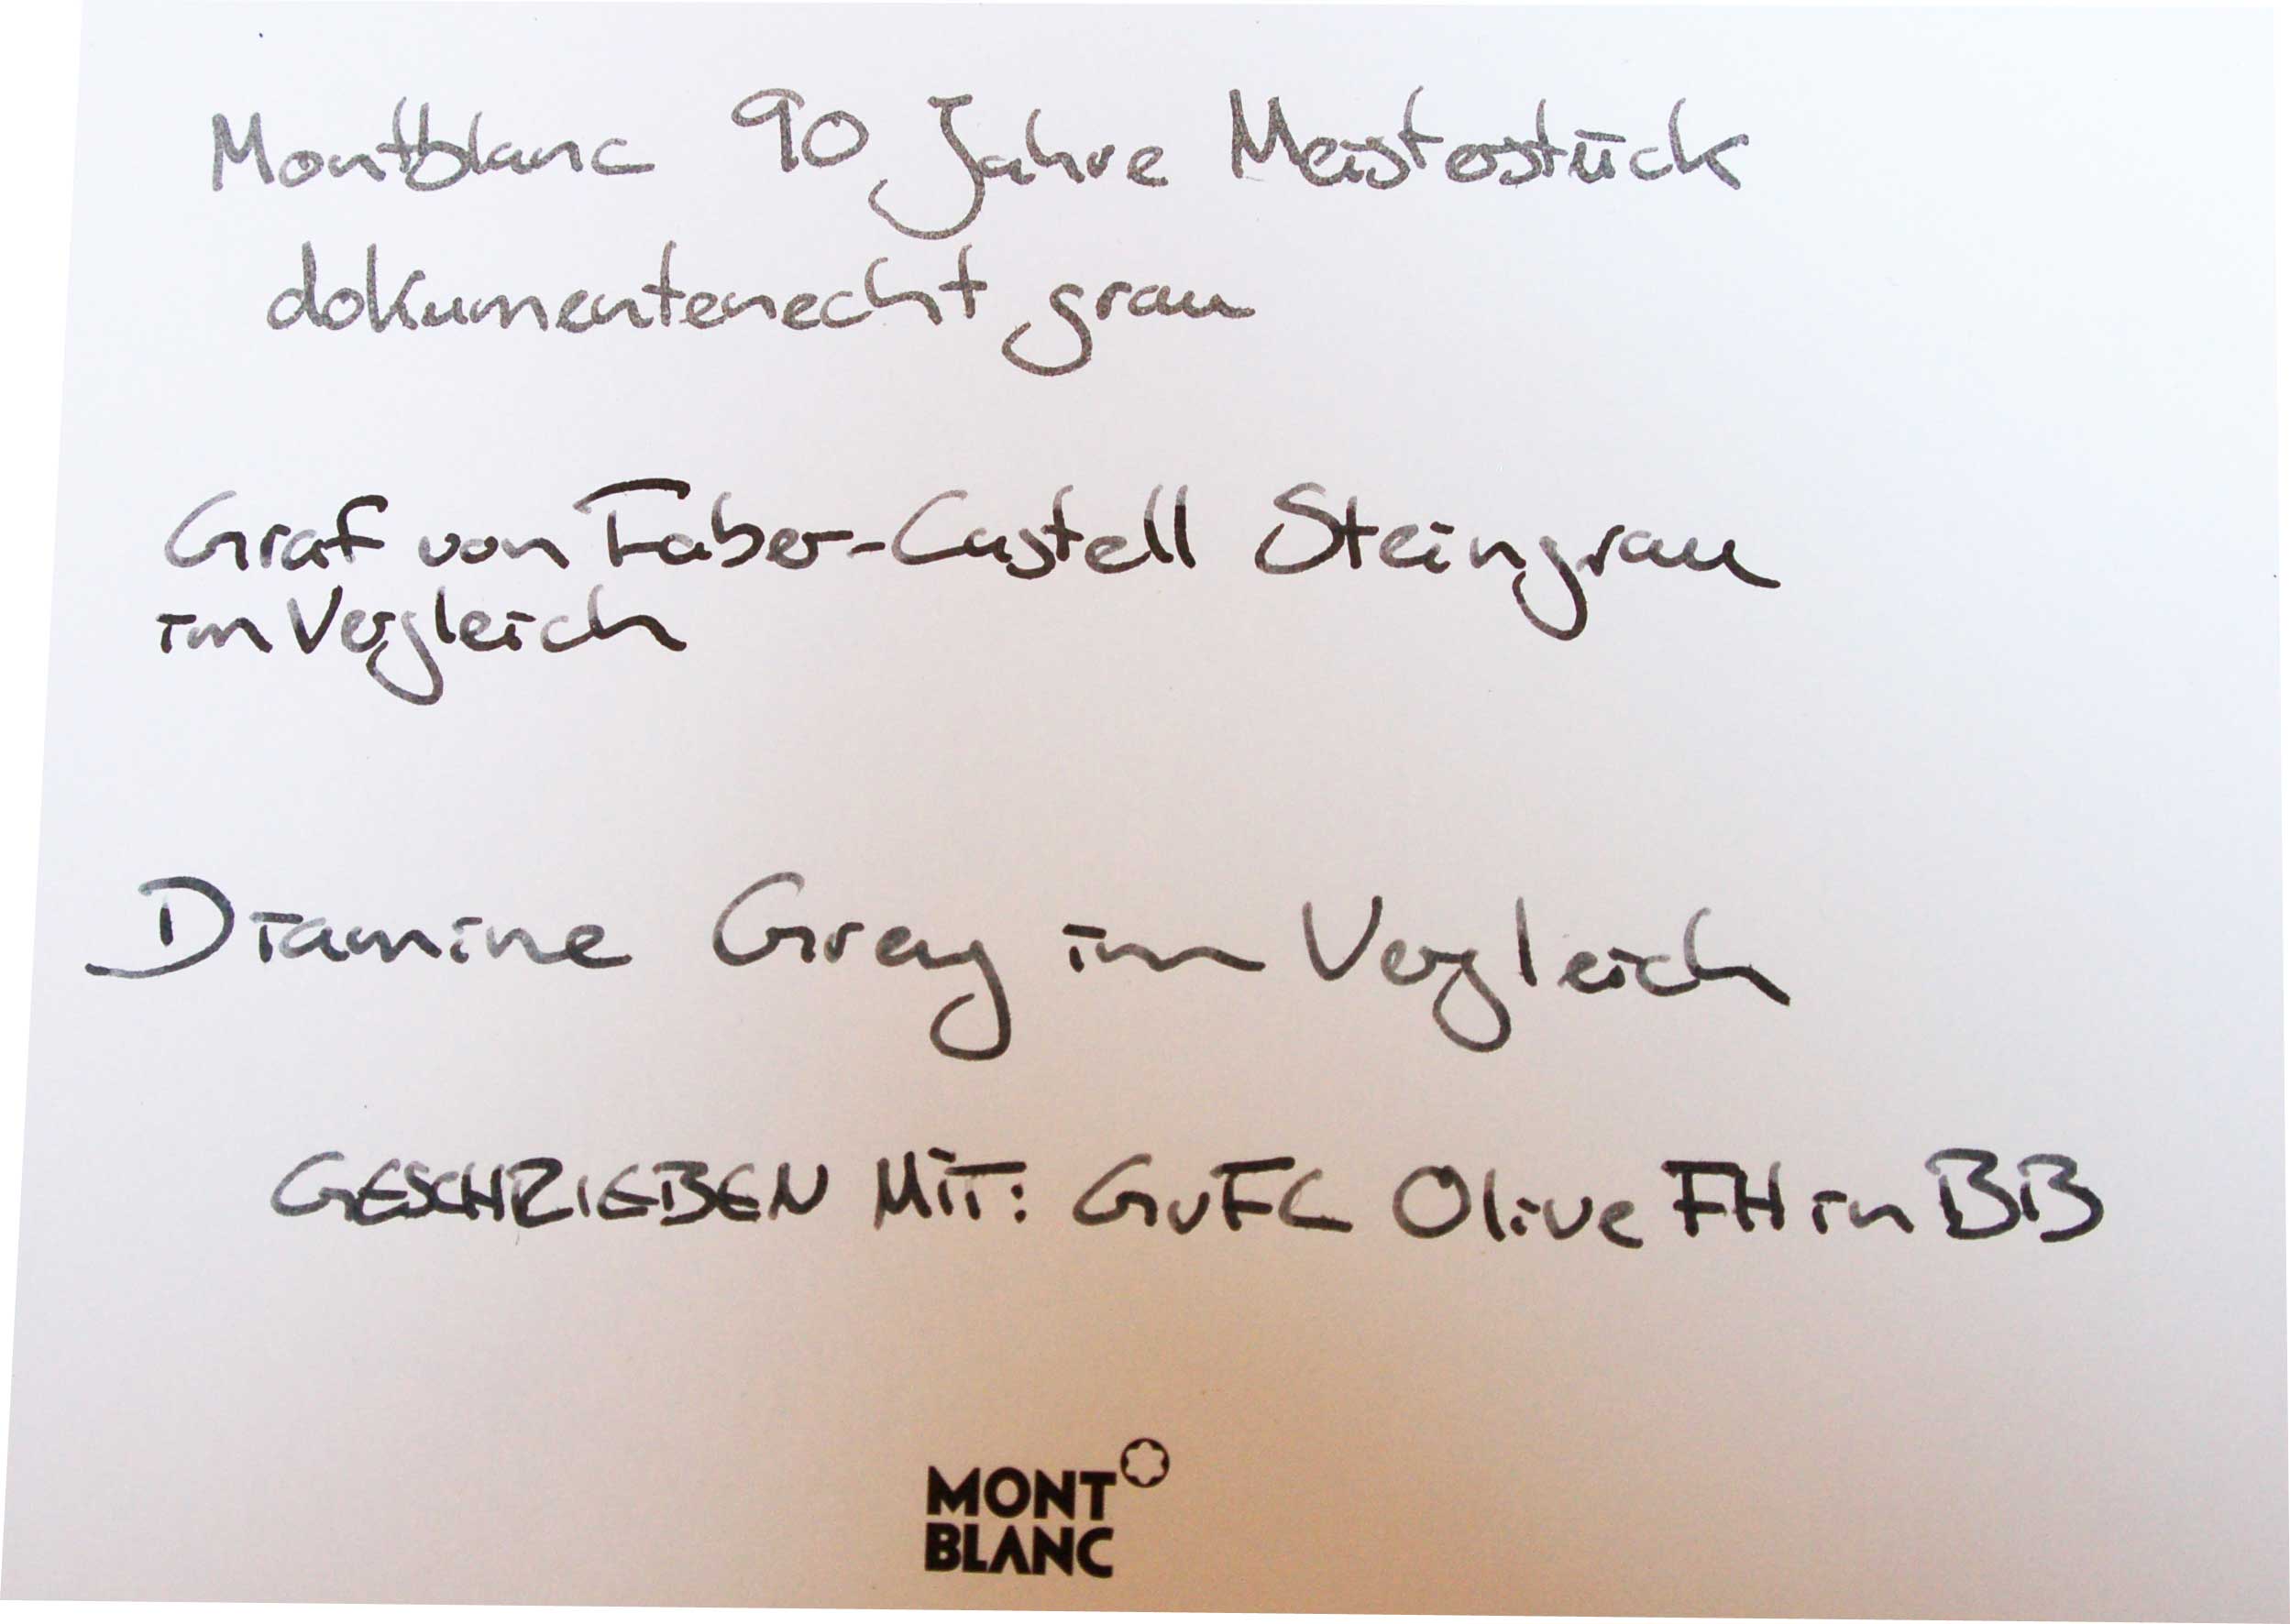 Montblanc 90 Jahre Meisterstück
dokumentenecht grau
Graf von Faber-Castell Steingrau
im Vergleich
Diamine Grey im Vergleich
GESCHRIEBEN MIT: GvFC Olive FH in BB
MONT
BLANC